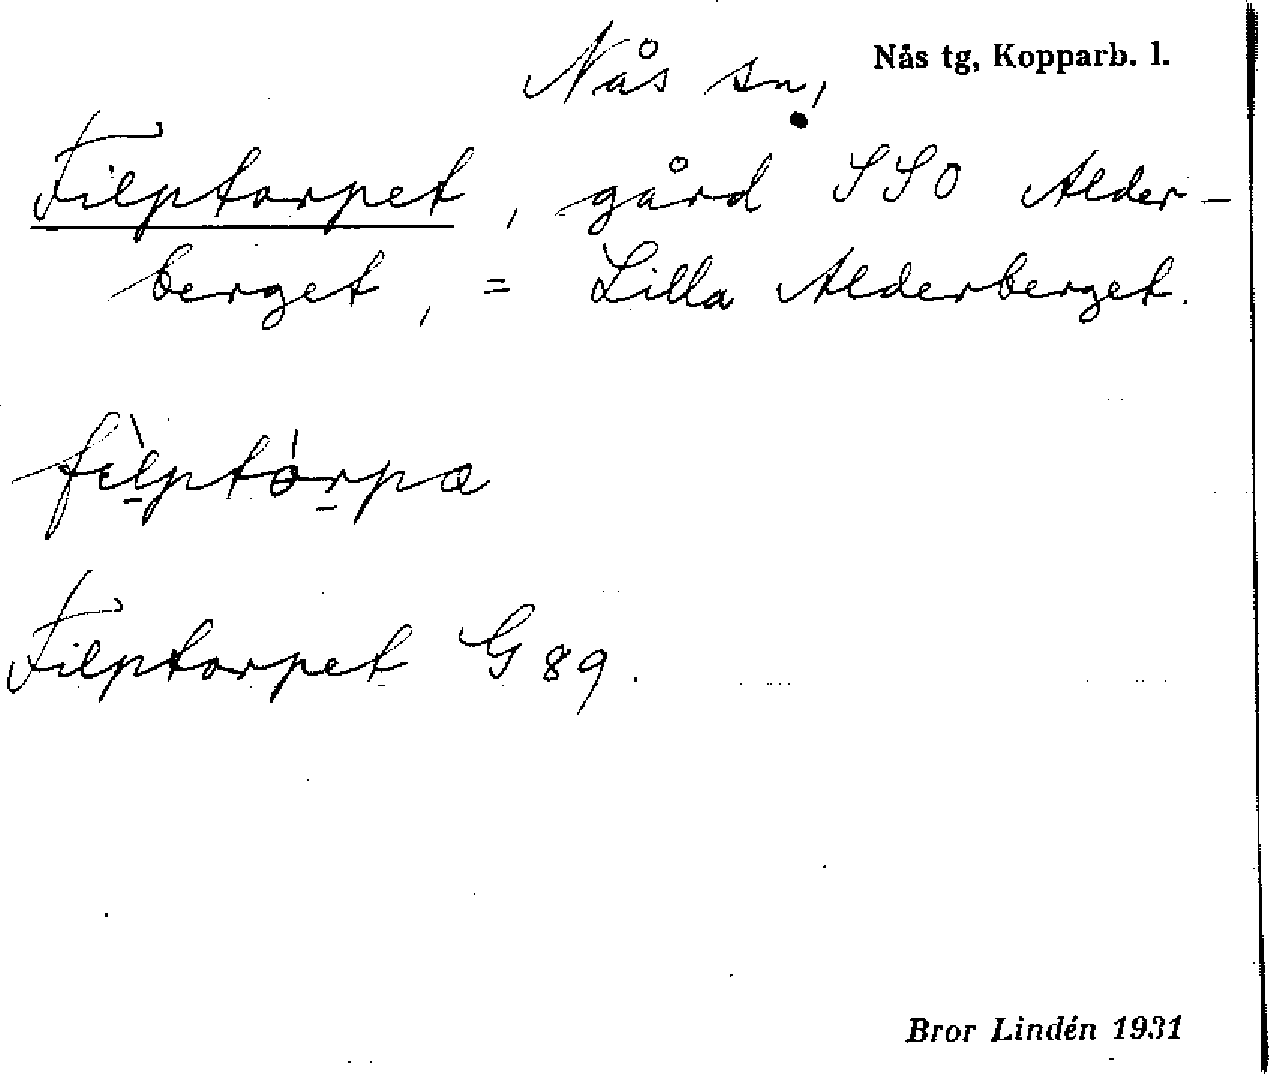 Nås sn, Nås tg, Kopparb. l.
Filptorpet, gård SSO Alder-
berget, = Lilla Alderberget.
fìlptórpa
Filptorpet G 89.
Bror Lindén 1931